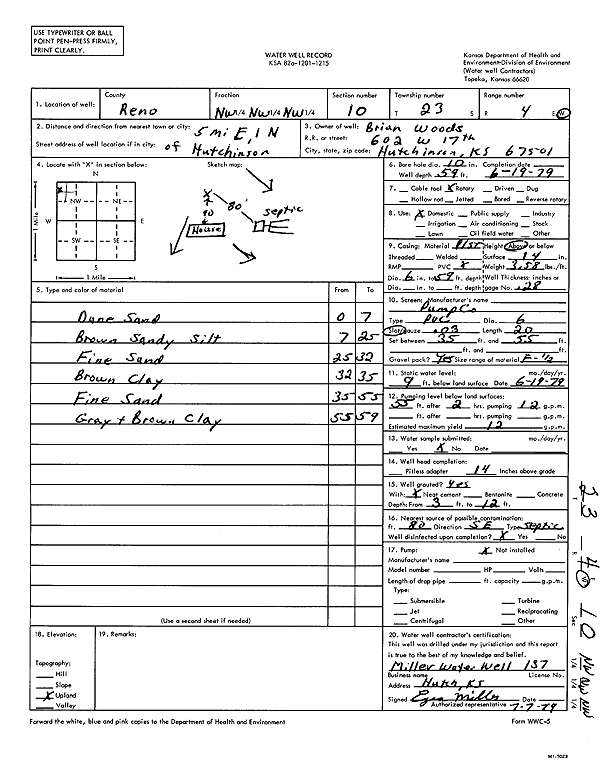 USE TYPEWRITER OR BALL
POINT PEN-PRESS FIRMLY,
PRINT CLEARLY.
WATER WELL RECORD
KSA 82a-1201-1215
Kansas Department of Health and
Environment-Division of Environment
(Water well Contractors)
Topeka, Kansas 66620
1. Location of well:
County
Reno
Fraction
NW 1/4 NW 1/4 NW 1/4
Section number
10
Township number
T 23 S
Range number
R 4 E W
2. Distance and direction from nearest town or city: 5 mi E, 1 N
Street address of well location if in city: of Hutchinson
3. Owner of well: Brian Woods
R.R. or street: 602 W 17th
City, state, zip code: Hutchinson, KS 67501
4. Locate with "X" in section below:
Sketch map:
N
NW NE
W E
SW SE
S
1 Mile
1 Mile
X
90
80'
House
septic
5. Type and color of material From To
Dune Sand 0 7
Brown Sandy Silt 7 25
Fine Sand 25 32
Brown Clay 32 35
Fine Sand 35 55
Gray + Brown Clay 55 59
(Use a second sheet if needed)
6. Bore hole dia. 10 in. Completion date
Well depth 59 ft. 6-19-79
7. Cable tool X Rotary Driven Dug
Hollow rod Jetted Bored Reverse rotary
8. Use: X Domestic Public supply Industry
Irrigation Air conditioning Stock
Lawn Oil field water Other
9. Casing: Material Plst Height: Above or below
Threaded Welded Surface 14 in.
RMP PVC X Weight 3.58 lbs./ft.
Dia. 6 in. to 59 ft. depth Wall Thickness: inches or
Dia. in. to ft. depth gage No. .28
10. Screen: Manufacturer's name
Pump Co
Type PVC Dia. 6
Slot/gauze .03 Length 20
Set between 35 ft. and 55 ft.
ft. and ft.
Gravel pack? Yes Size range of material F-1/2
11. Static water level: mo./day/yr.
9 ft. below land surface Date 6-19-79
12. Pumping level below land surfaces:
55 ft. after 2 hrs. pumping 12 g.p.m.
ft. after hrs. pumping g.p.m.
Estimated maximum yield 12 g.p.m.
13. Water sample submitted: mo./day/yr.
Yes X No Date
14. Well head completion:
Pitless adapter 14 Inches above grade
15. Well grouted? Yes
With: X Neat cement Bentonite Concrete
Depth: From 3 ft. to 12 ft.
16. Nearest source of possible contamination:
ft. 80 Direction SE Type Septic
Well disinfected upon completion? X Yes No
17. Pump: X Not installed
Manufacturer's name
Model number HP Volts
Length of drop pipe ft. capacity g.p.m.
Type:
Submersible Turbine
Jet Reciprocating
Centrifugal Other
18. Elevation:
Topography:
Hill
Slope
X Upland
Valley
19. Remarks:
20. Water well contractor's certification:
This well was drilled under my jurisdiction and this report
is true to the best of my knowledge and belief.
Miller Water Well 137
Business name License No.
Address Hutch, KS
Signed Ezra Miller Date 7-7-79
Authorized representative
Forward the white, blue and pink copies to the Department of Health and Environment
Form WWC-5
T 23 - R 4 W
Sec 10 NW NW NW
1/4 1/4 1/4